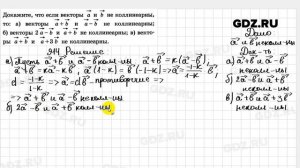 Докажите, что если векторы a и b не коллинеарны,
то: а) векторы a+b и a−b не коллинеарны;
б) векторы 2a−b и a+b не коллинеарны; в) векто-
ры a+b и a+3b не коллинеарны.
GDZ.RU
914 Решение
а) Пусть a+b и a−b колл-ны
=> a−b и a+b неколл-ны
б) 2a−b и a+b колл-ны
Дано
a и b неколл-ны
Док-ть
а) a+b и a−b
неколл-ны
б) 2a−b и a+b
неколл-ны
в) a+b и a+3b
неколл-ны
GDZ.RU